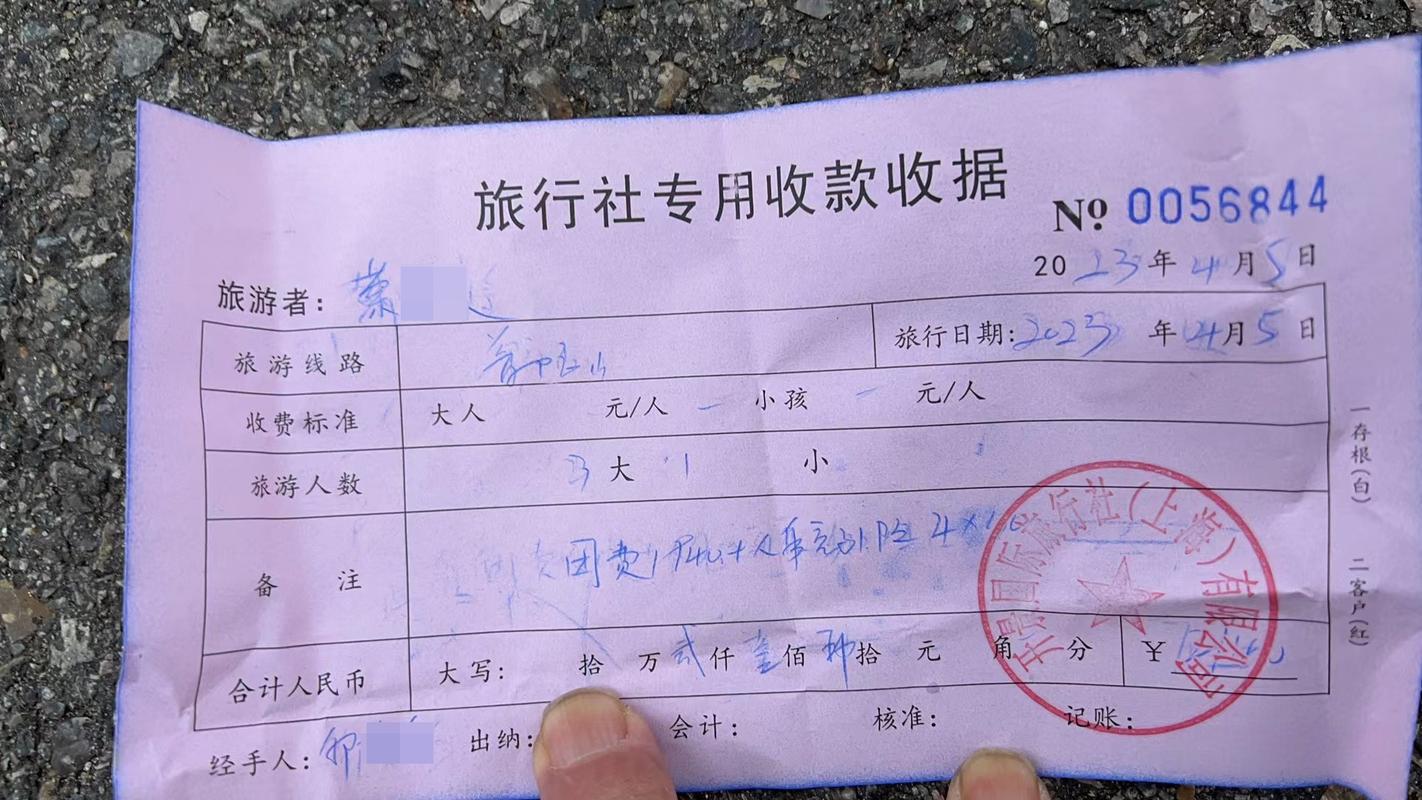 旅行社专用收款收据
№ 0056844
2023年4月5日
旅游者：
旅游线路 旅行日期：2023年4月5日
收费标准 大人 元/人 小孩 元/人
旅游人数 3大1 小
备 注 团费
合计人民币 大写： 拾 万贰仟壹佰 拾 元 角 分 ￥
经手人： 出纳： 会计： 核准： 记账：
一存根（白） 二客户（红）
国际旅行社（上海）有限公司